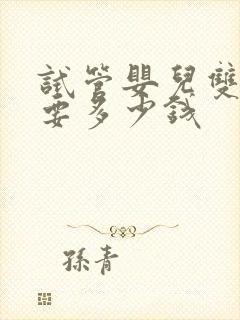 試管嬰兒雙
要多少錢
孫青